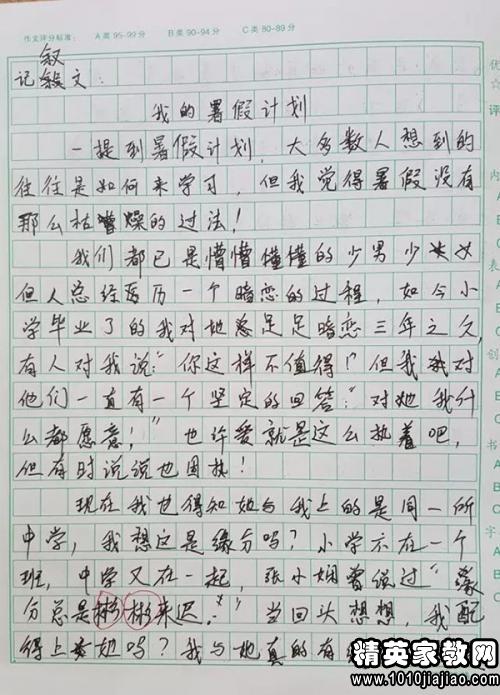 作文评分标准： A类 95-99分 B类 90-94分 C类 80-89分
叙
记 文
优
☆
评
我的暑假计划
一提到暑假计划，大多数人想到的
往往是如何来学习，但我觉得暑假没有
那么枯燥的过法！
我们都已是懵懵懂懂的少男少女
但人总经历一个暗恋的过程，如今小
学毕业了的我对她足足暗恋三年之久
有人对我说：“你这样不值得！”但我对
他们一直有一个坚定的回答：“对她我什
么都愿意！”也许爱就是这么执着吧，
但有时说说也固执！
现在我也得知她与我上的是同一所
中学，我想这是缘分吗？小学不在一个
班，中学又在一起，张小娴曾说过“缘
分总是彬彬来迟。”当回头想想，我配
得上她吗？我与她真的有缘
内
A
B
C
表
A
B
C
创
A
B
C
字
A
精英家教网
www.1010jiajiao.com